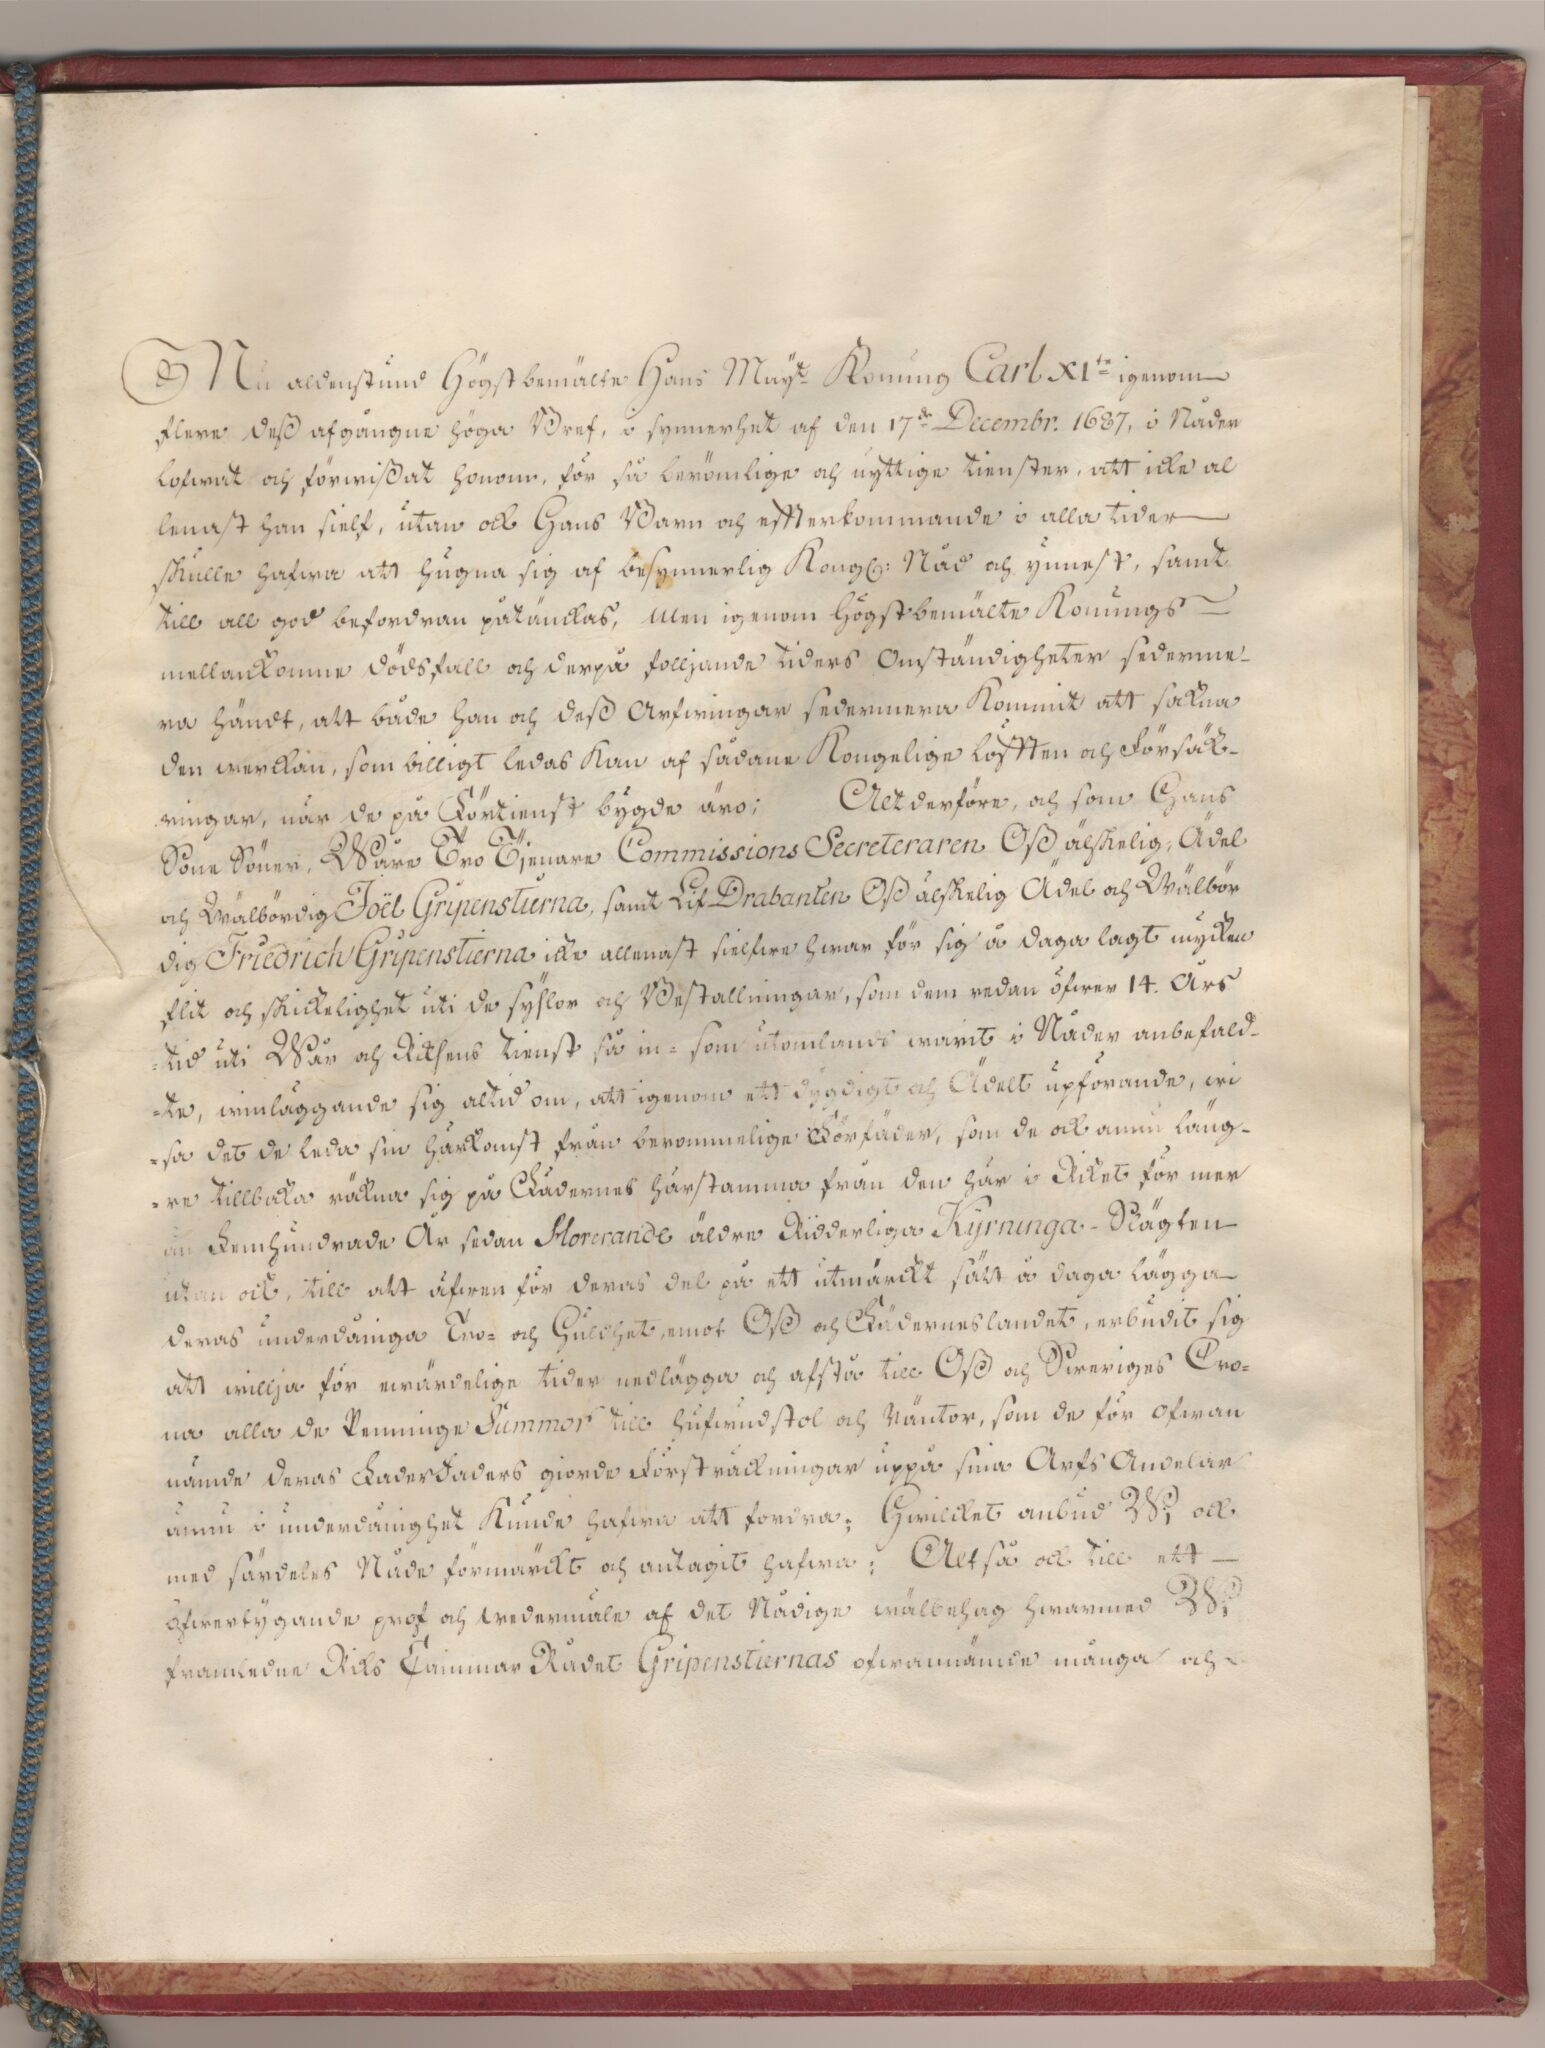 Nu aldenstund Högstbemälte Hans Maÿt Konung Carl XIte igenom
flere deß afgångne höga Bref, i synnerhet af den 17de Decembr. 1687, i Nåder
lofwat och förwißat honom, för så berömlige och nyttige tienster, att icke al
lenast han sielf, utan ock Hans Barn och effterkommande i alla tider
skulle hafwa att hugna sig af besynnerlig Kongl: Nåd och ynnest, samt
till all god befordran påtänckas, Men igenom högstbemälte Konungs
mellankomne dödsfall och derpå folljande tiders Omständigheter sederme-
ra händt, att både han och deß Arfwingar sedermera Kommit att sakna
den werckan, som billigt ledas Kan af sådane Kongelige löfften och Försäk-
ringar, när de på Förtienst bygde äro; Alt derföre, och som Hans
Sone Söner, Wåre Tro Tjenare Commissions Secreteraren Oß älskelig, Ädel
och Wälbördig Joël Gripenstierna, samt Lif Drabanten Oß älskelig Ädel och Wälbör
dig Friedrich Gripenstierna icke allenast sielfwe hwar för sig å daga lagt mycken
flit och skickelighet uti de syßlor och Beställningar, som dem redan öfwer 14. Års
-tid uti Wår och Riksens tienst så in- som utomlands warit i Nåder anbefald-
-te, winläggande sig altid om, att igenom ett dygdigt och Ädelt upförande, wi
-sa det de leda sin härkomst från berommelige Förfäder, som de ock ännu läng-
-re tillbaka räkna sig på Fädernes härstamma från den här i Riket för mer
än Femhundrade År sedan Florerande äldre Ridderliga Kÿrninga-Slägten
utan ock, till att äfwen för deras del på ett utmärckt sätt å daga lägga
deras underdåniga Tro- och Huldhet, emot Oß och Fäderneslandet, erbudit sig
att willja för ewärdelige tider nedlägga och afstå till Oß och Sweriges Cro-
na alla de Penninge Summor till hufwudstol och räntor, som de för ofwan
nämde deras FaderFaders giorde Försträckningar uppå sina Arfs Andelar
ännu i underdånighet Kunde hafwa att fordra; Hwilcket anbud Wi ock
med särdeles Nåde förmärckt och antagit hafwa; Altså ock till ett
öfwertygande prof och wedermäle af det Nådige wälbehag hwarmed Wi
framledne Riks Cammar Rådet Gripenstiernas ofwannämde många och